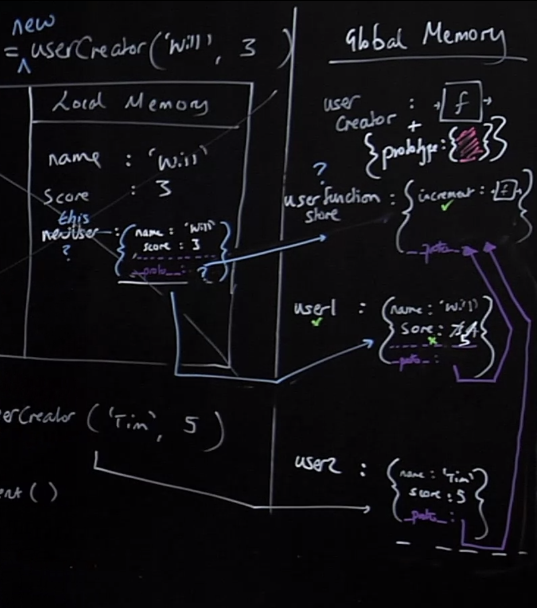 new
= userCreator('Will', 3)
Local Memory
name : 'Will'
Score : 3
this
newUser : { name : 'Will'
score : 3
__proto__ : ? }
?
erCreator ('Tim', 5)
ent()
Global Memory
user Creator : f
+
{ prototype : { } }
?
userfunction store : { increment : f
__proto__ }
user1 : { name : 'Will'
Score : 5
__proto__ : }
user2 : { name : 'Tim'
score : 5
__proto__ : }